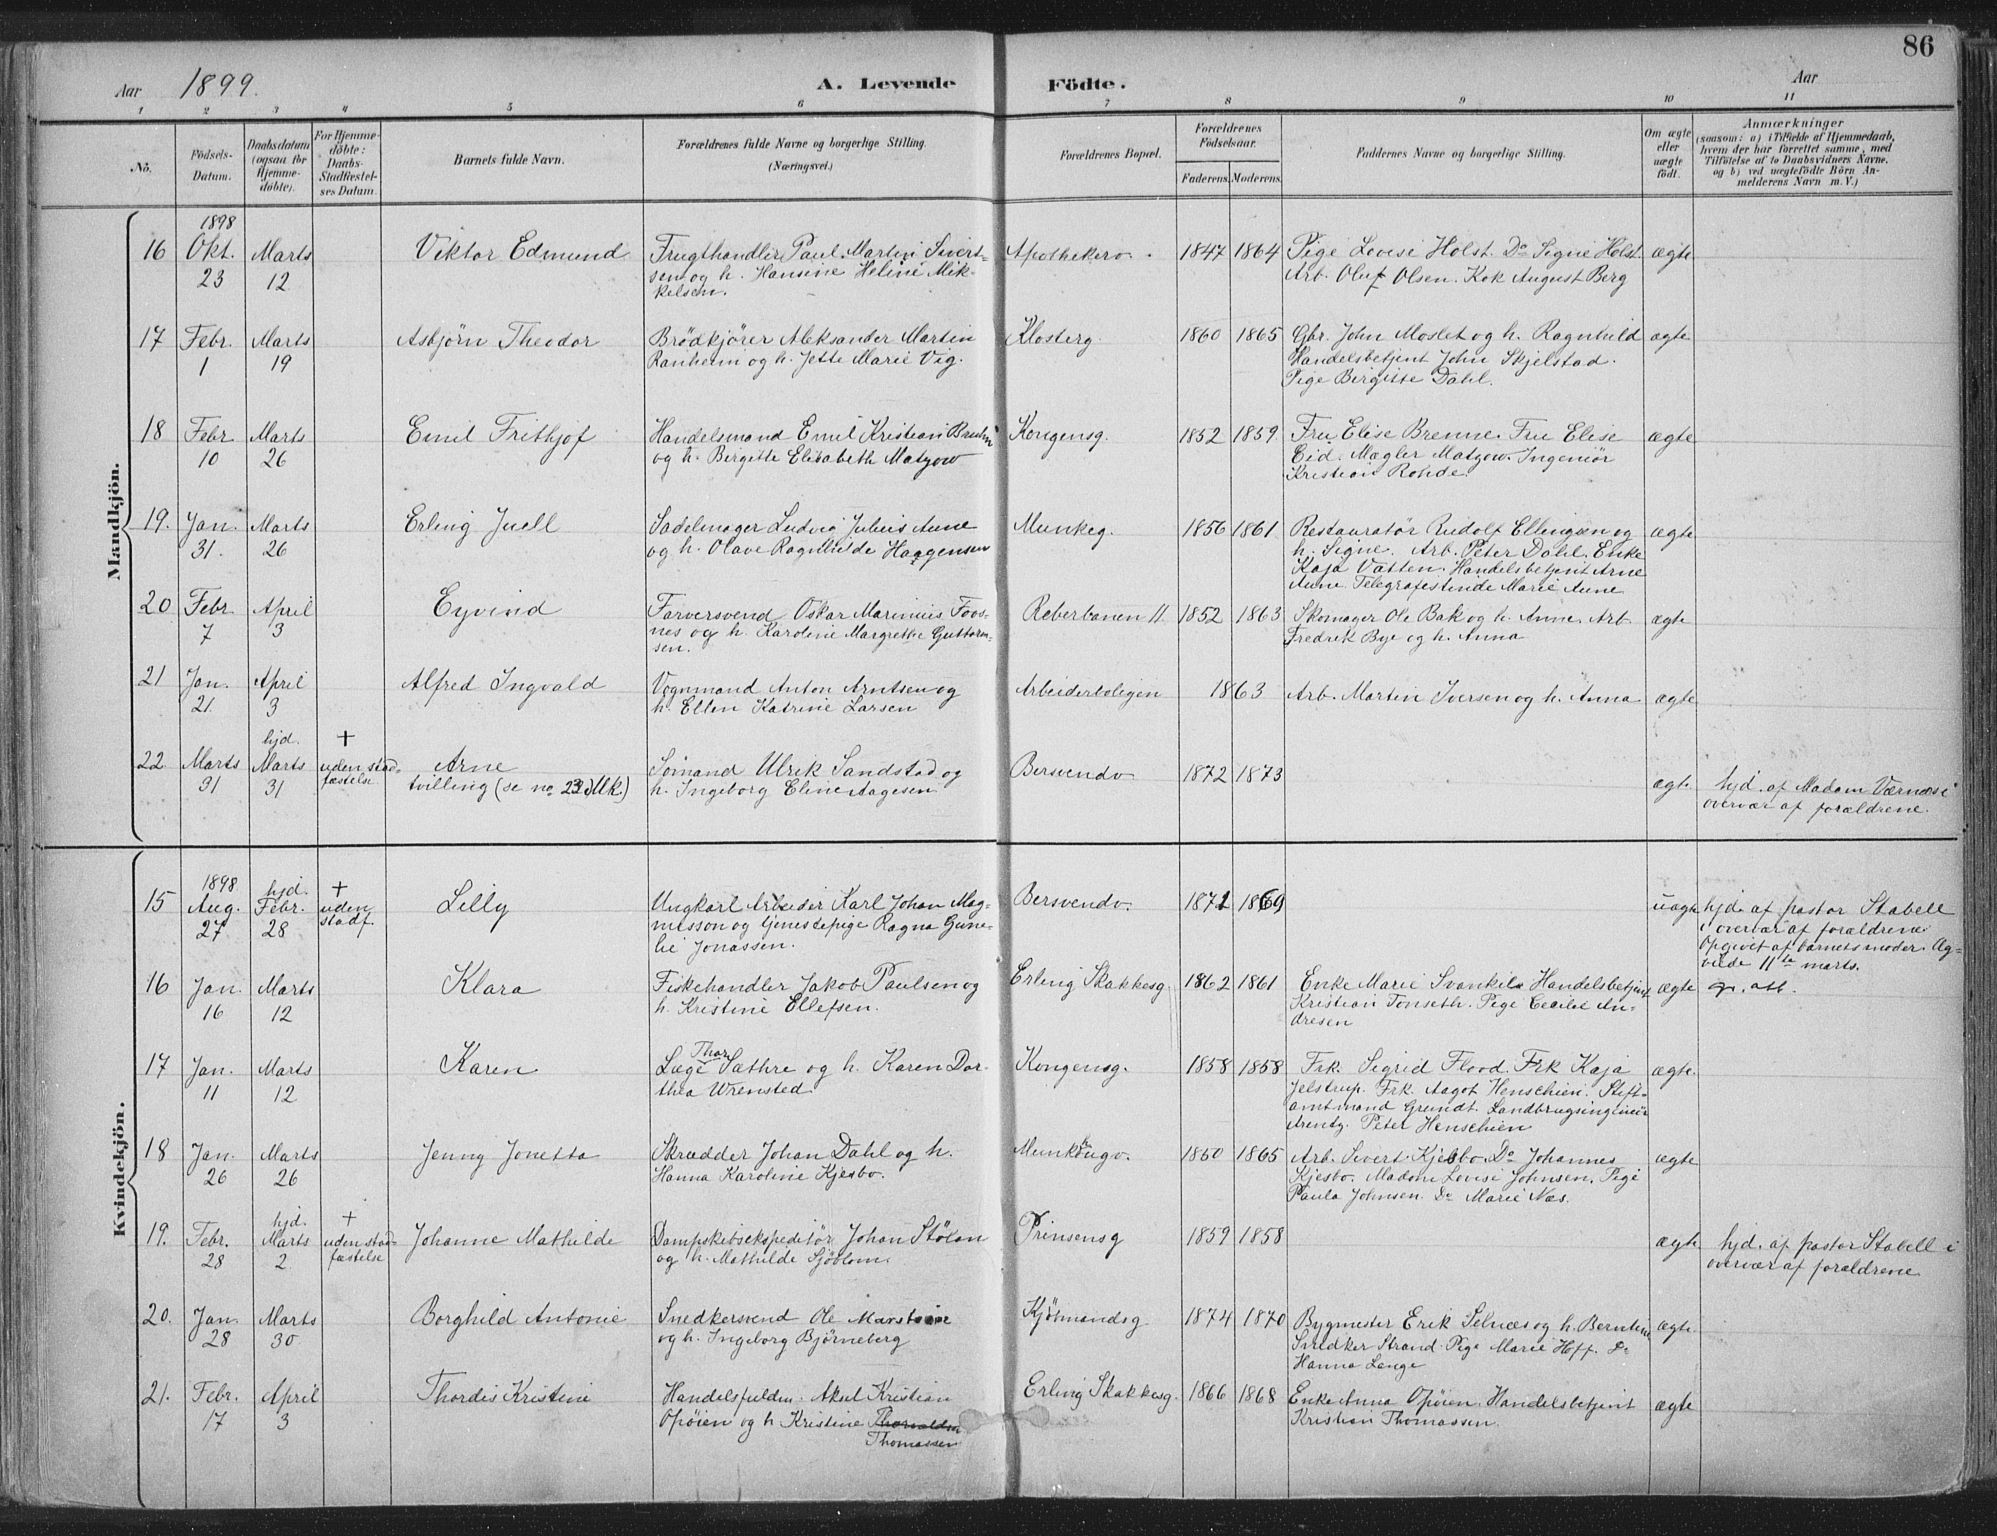 86
Aar 1899. A. Levende Födte. Aar
1 2 3 4 5 6 7 8 9 10 11
No.
Födsels-
Datum.
Daabsdatum
(ogsaa for
Hjemme-
döbte).
For Hjemme-
döbte:
Daabs-
Stadfæstel-
ses Datum.
Barnets fulde Navn.
Forældrenes fulde Navne og borgerlige Stilling.
(Næringsvei.)
Forældrenes Bopæl.
Forældrenes
Födselsaar.
Faderens. Moderens.
Faddernes Navne og borgerlige Stilling.
Om ægte
eller
uægte
födt.
Anmærkninger
(saasom: a) i Tilfælde af Hjemmedaab,
hvem der har forrettet samme, med
Tilföielse af to Daabsvidners Navne,
og b) ved uægtefödte Börn An-
melderens Navn m. V.)
Mandkjön.
1898
16 Okt. Marts Viktor Edmund Frugthandler Paul Martin Sivert- Apothekerv. 1847 1864 Pige Lovise Holst. Do Signe Holst. ægte
23 12 sen og h. Hansine Heline Mik- Arb. Oluf Olsen. Kok August Berg
kelsen.
17 Febr. Marts Asbjørn Theodor Brödkjörer Aleksander Martin Klosterg. 1860 1865 Gbr. John Moslet og h. Ragnhild ægte
1 19 Ranheim og h. Jette Marie Vig. Handelsbetjent John Skjelstad.
Pige Birgitte Dahl.
18 Febr. Marts Emil Frithjof Handelsmand Emil Kristian Kongensg. 1852 1859 Fru Elise Brenne. Fru Elise ægte
10 26 og h. Bergitte Elisabeth Matzow Eid. Mægler Matzow. Ingeniør
Kristian Rohde.
19. Jan. Marts Erling Juell Sadelmager Ludvig Julius Aune Munkeg. 1856 1861 Restauratør Rudolf Ellingsen og ægte
31. 26 og h. Olave Ragnhilde Haagensen h. Signe. Arb. Peter Dahl. Enke
Kaja Vatten. Handelsbetjent Arne
Aune. Telegrafistinde Marie Aune
20 Febr. April Eyvind Farversvend Oskar Marinius Foos- Reberbanen 11 1852 1863 Skomager Ole Bak og h. Anne. Arb. ægte
7 3 nes og h. Karoline Margrethe Guttorm- Fredrik Bye og h. Anna
sen.
21 Jan. April Alfred Ingvald Vognmand Anton Arntsen og Arbeiderboligen 1863 Arb. Martin Iversen og h. Anna ægte
21. 3 h. Ellen Katrine Larsen
hjd. +
22 Marts Marts uden stad- Arne Sömand Ulrik Sandstad og Bersvendv 1872 1873 ægte hjd. af Madam Værnæs i
31 31 fæstelse tvilling (se no 23 Mk.) h. Ingeborg Eline Aagesen overvær af forældrene.
Kvindekjön.
1898 hjd. +
15 Aug. Febr. uden Lilly Ungkarl Arbeider Karl Johan Mag- Bersvendv. 1871 1869 uægte hjd. af pastor Stabell
27 28 stadf. nusson og tjenestepige Ragna Gune- i overvær af forældrene.
lie Jonassen. Opgivet af barnets moder. Æg-
viede 11te marts.
16 Jan. Marts Klara Fiskehandler Jakob Paulsen og Erling Skakkesg. 1862 1861 Enke Marie Svankile Handelsbetjent ægte
16 12 h. Kristine Ellefsen. Kristian Tonseth. Pige Cecilie An-
dresen
17 Jan. Marts Karen Læge Thor Sæthre og h. Karen Dor- Kongensg. 1858 1858 Frk. Sigrid Flood. Frk Kaja ægte
11 12 thea Wrensted Jelstrup. Frk. Aagot Henschien. Stift-
amtmand Grendt. Landbrugsingeniør
Arentz. Peter Henschien
18 Jan. Marts Jenny Jonetta Skrædder Johan Dahl og h. Munkhaugv. 1860 1865 Arb. Sivert Kjesbo. Do Johannes ægte
26 26 Hanna Karoline Kjesbo. Kjesbo. Madam Lovise Johnsen. Pige
Paula Johnsen. Do Marie Næs.
hjd. +
19. Febr. Marts uden stad- Johanne Mathilde Dampskibsekspeditör Johan Stölan Prinsensg 1859 1858 ægte hjd. af pastor Stabell i
28 2 fæstelse og h. Mathilde Sjöblom. overvær af forældrene
20. Jan. Marts Borghild Antonie Snedkersvend Ole Kjöbmandsg 1874 1870 Bygmester Erik Selnæs og h. Berntine ægte
28 30 og h. Ingeborg Björneberg Snedker Strand. Pige Marie Hoff. Do
Hanna Lange
21. Febr. April Thordis Kristine Handelsfuldm. Aksel Kristian Erling Skakkesg. 1866 1868 Enke Anna Opöien. Handelsbetjent ægte
17 3 Opöien og h Kristine Thorvaldsen Kristian Thomassen.
Thomassen